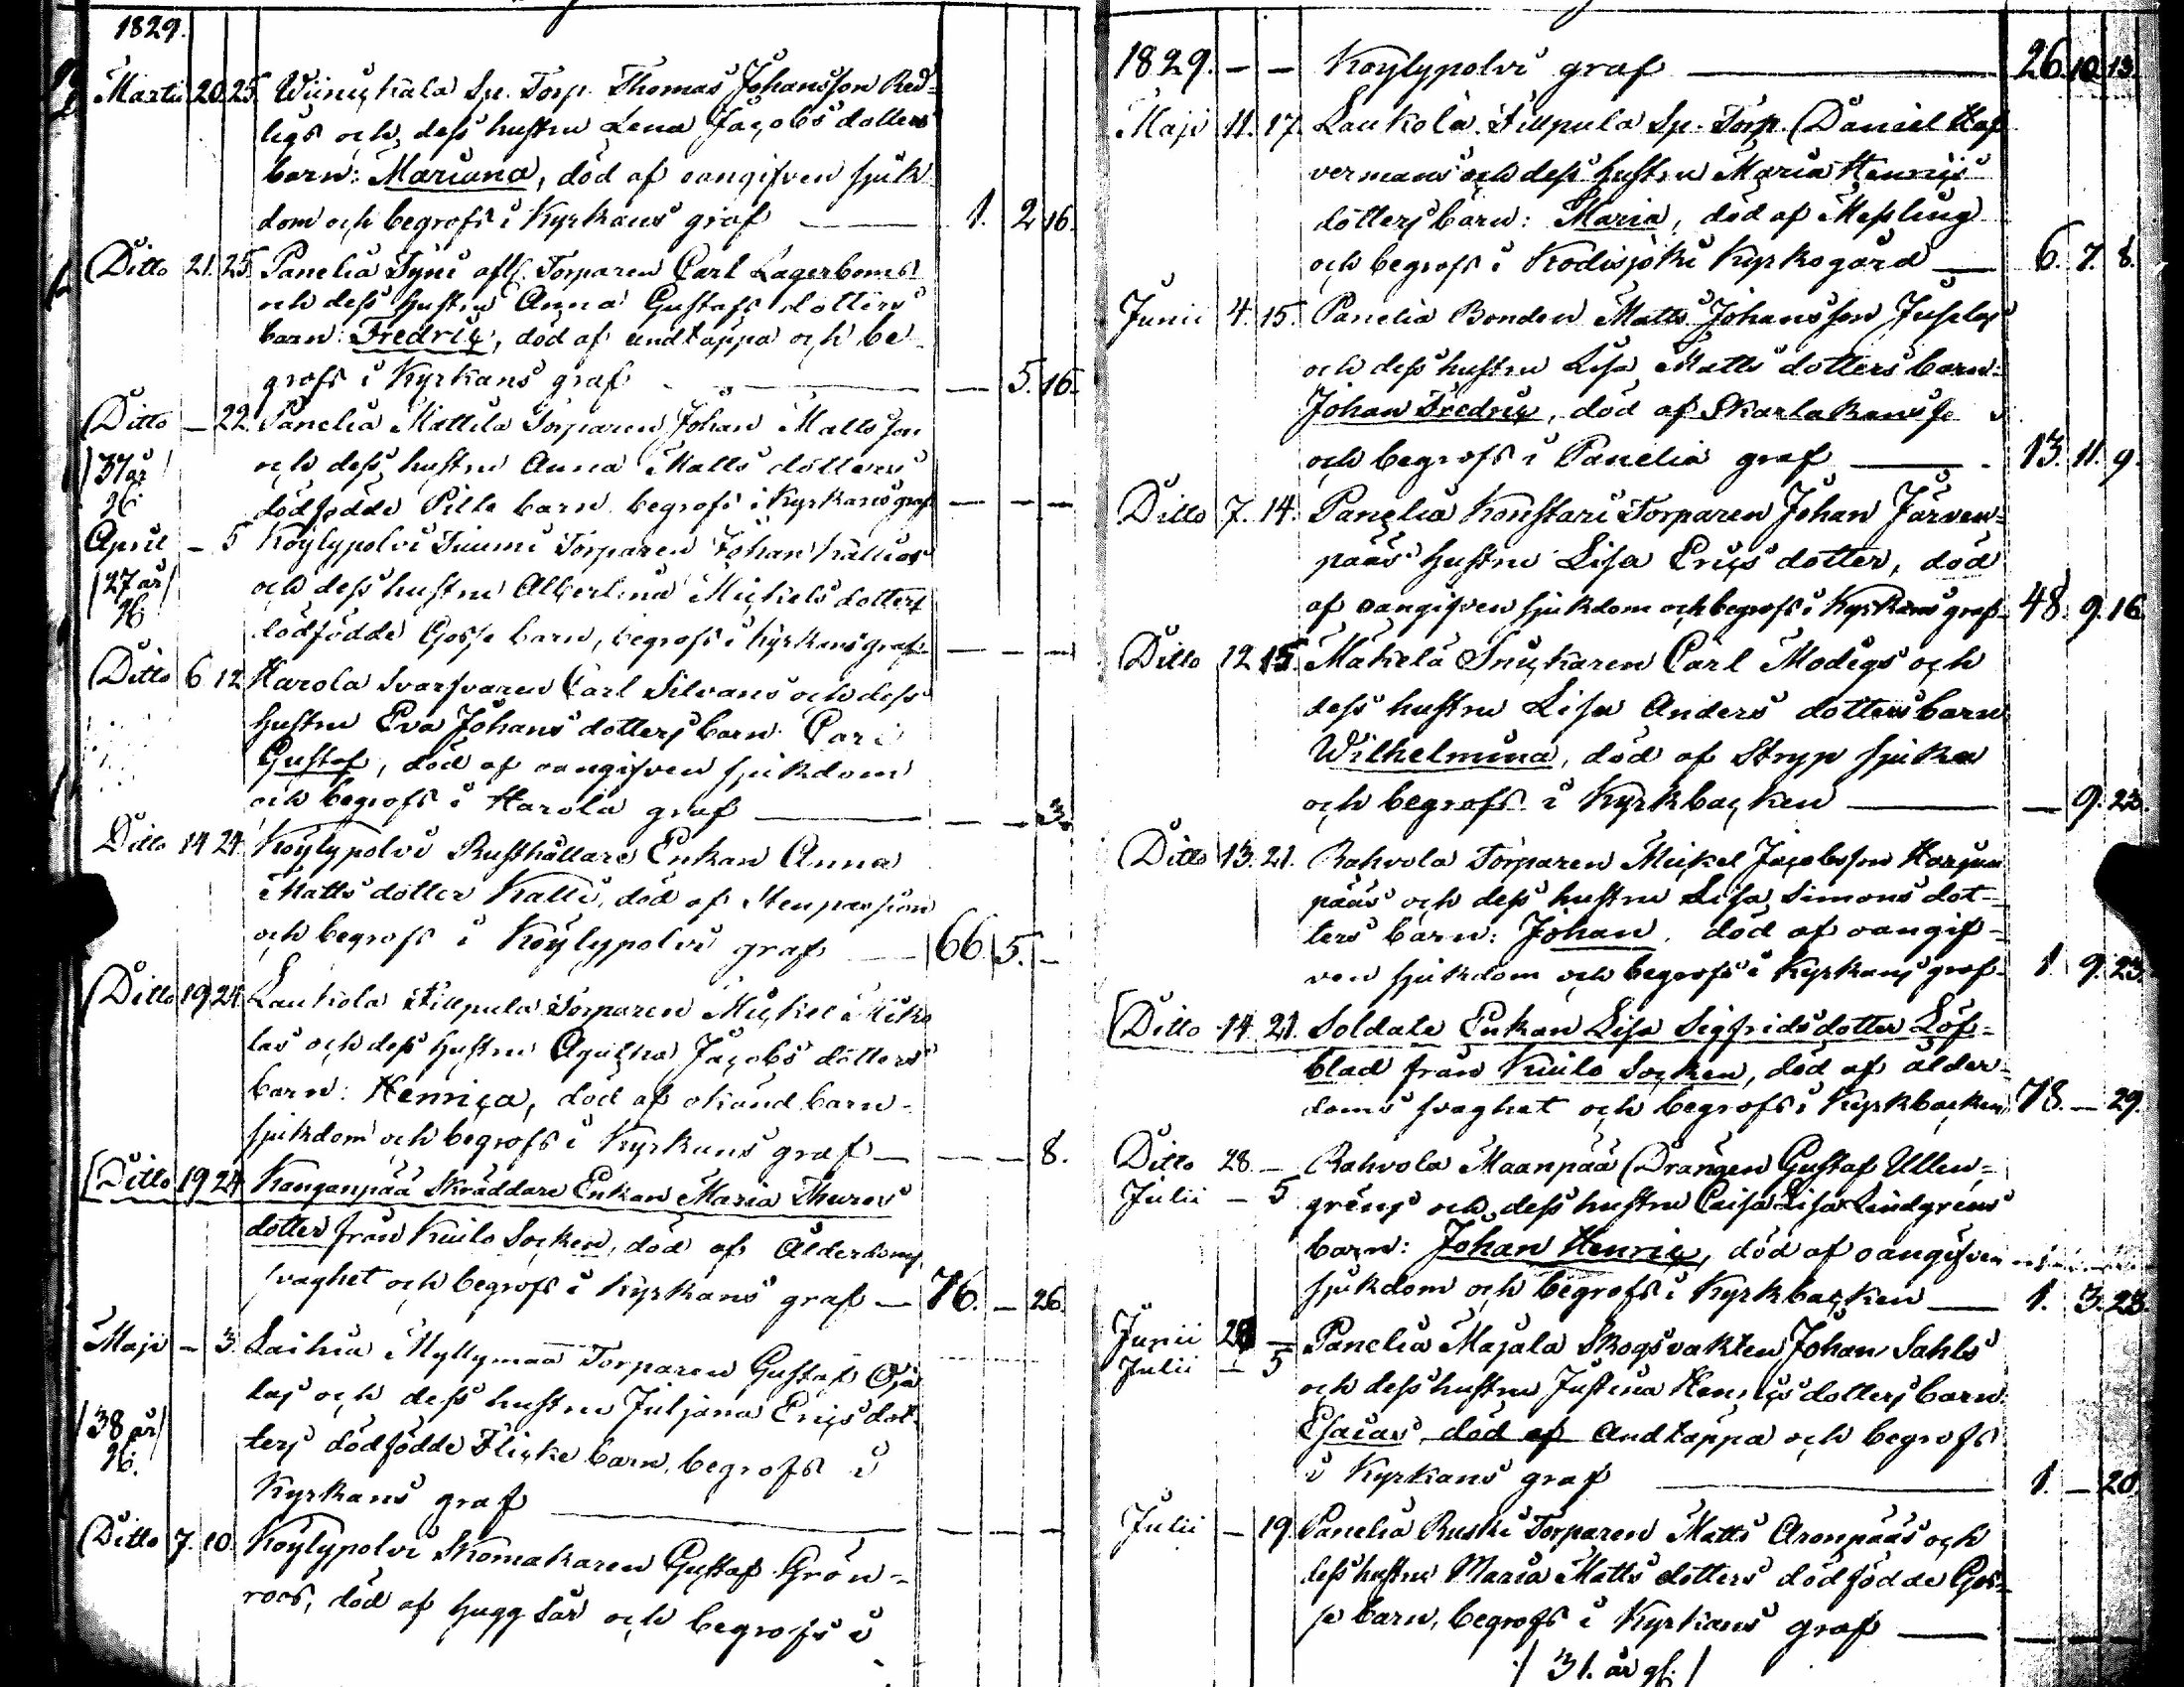 1829.
Martii 20. 25. Wiinickala Sp. Torp. Thomas Johansson Red-
ligs och dess hustru Lena Jacobs dotters
barn: Mariana, död af oangifven sjuk-
dom och begrofs i Kyrkans graf — 1. 2. 16.
Ditto 21. 25. Panelia Tyni Torparen Carl Lagerboms
och dess hustru Anna Gustafs dotters
barn: Fredric, död af andtäppa och be-
grofs i Kyrkans graf — — 5. 16.
Ditto — 22. Panelia Mattila Torparen Johan Matts son
/37 år/ och dess hustru Anna Matts dotters
dödfödde barn begrofs i Kyrkans graf — — —
April — 5 Köylypolvi Tuumi Torparen Johan Kallios
/27 år/ och dess hustru Albertina Mickels dotters
dödfödde Gosse barn, begrofs i Kyrkans graf — — —
Ditto 6 12 Harola Svarfvaren Carl Silvans och dess
hustru Eva Johans dotters barn Carl
Gustaf, död af oangifven sjukdom
och begrofs i Harola graf — — — 3.
Ditto 14 24. Köylypolvi Rusthållare Enkan Anna
Matts dotter Kalli, död af Stenpassion
och begrofs i Köylypolvi graf — 66. 5. —
Ditto 19 24. Laukola Fillpula Torparen Mickel Miko
las och dess hustru Agatha Jacobs dotters
barn: Henrica, död af okänd barn-
sjukdom och begrofs i Kyrkans graf — — — 8.
Ditto 19 24 Kanganpää Skräddare Enkan Maria Thures
dotter från Kiulo Socken, död af Ålderdoms
svaghet och begrofs i Kyrkans graf — 76. — 26.
Maji — 3. Laihia Myllymaa Torparen Gustaf Oja
las och dess hustru Juljana Erics dot-
/38 år/ ters dödfödde Flicke barn, begrofs i
Kyrkans graf — — — —
Ditto 7. 10. Köylypolvi Skomakaren Gustaf Grön-
roos, död af hugg sår och begrofs i
1829. — — Köylypolvi graf — 26. 10. 13.
Maji 11. 17. Laukola Fillpula Sp. Torp. Daniel Haf
vermans och dess hustru Maria Henrics
dotters barn: Maria, död af Messling
och begrofs i Kodisjoki Kyrkogård — 6. 7. 8.
Junii 4. 15. Panelia Bonden Matts Johansson Juselas
och dess hustru Lisa Matts dotters barn:
Johan Fredric, död af Skarlakansfe
och begrofs i Panelia graf — 13. 11. 9.
Ditto 7. 14. Panelia Konstari Torparen Johan Järven-
pääs hustru Lisa Erics dotter, död
af oangifven sjukdom och begrofs i Kyrkans graf 48. 9. 16
Ditto 12 15. Mäkelä Snickaren Carl Modigs och
dess hustru Lisa Anders dotters barn
Wilhelmina, död af Stryp sjuka
och begrofs i Kyrkbacken — — 9. 23.
Ditto 13. 21. Rahvola Torparen Mickel Jacobsson Harjun
pääs och dess hustru Lisa Simons dot-
ters barn: Johan, död af oangif-
ven sjukdom och begrofs i Kyrkans graf 1. 9. 23.
Ditto 14. 21. Soldate Enkan Lisa Sigfrids dotter Löf-
blad från Kiulo Socken, död af ålder-
doms svaghet och begrofs i Kyrkbacken 78. — 29.
Ditto 28. — Rahvola Maanpää Drängen Gustaf Ullen-
Julii — 5 gréns och dess hustru Caisa Lisa Lindgréns
barn: Johan Henric, död af oangifven
sjukdom och begrofs i Kyrkbacken — 1. 3. 23
Junii — Panelia Majala Skogsvakten Johan Sahls
Julii — 5 och dess hustru Justina Henrics dotters barn:
Esaias, död af Andtäppa och begrofs
i Kyrkans graf — 1. — 20.
Julii — 19. Panelia Ruski Torparen Matts Aronpääs och
dess hustru Maria Matts dotters dödfödde Gos-
se barn, begrofs i Kyrkans graf — — — —
/ 31. år gl. /